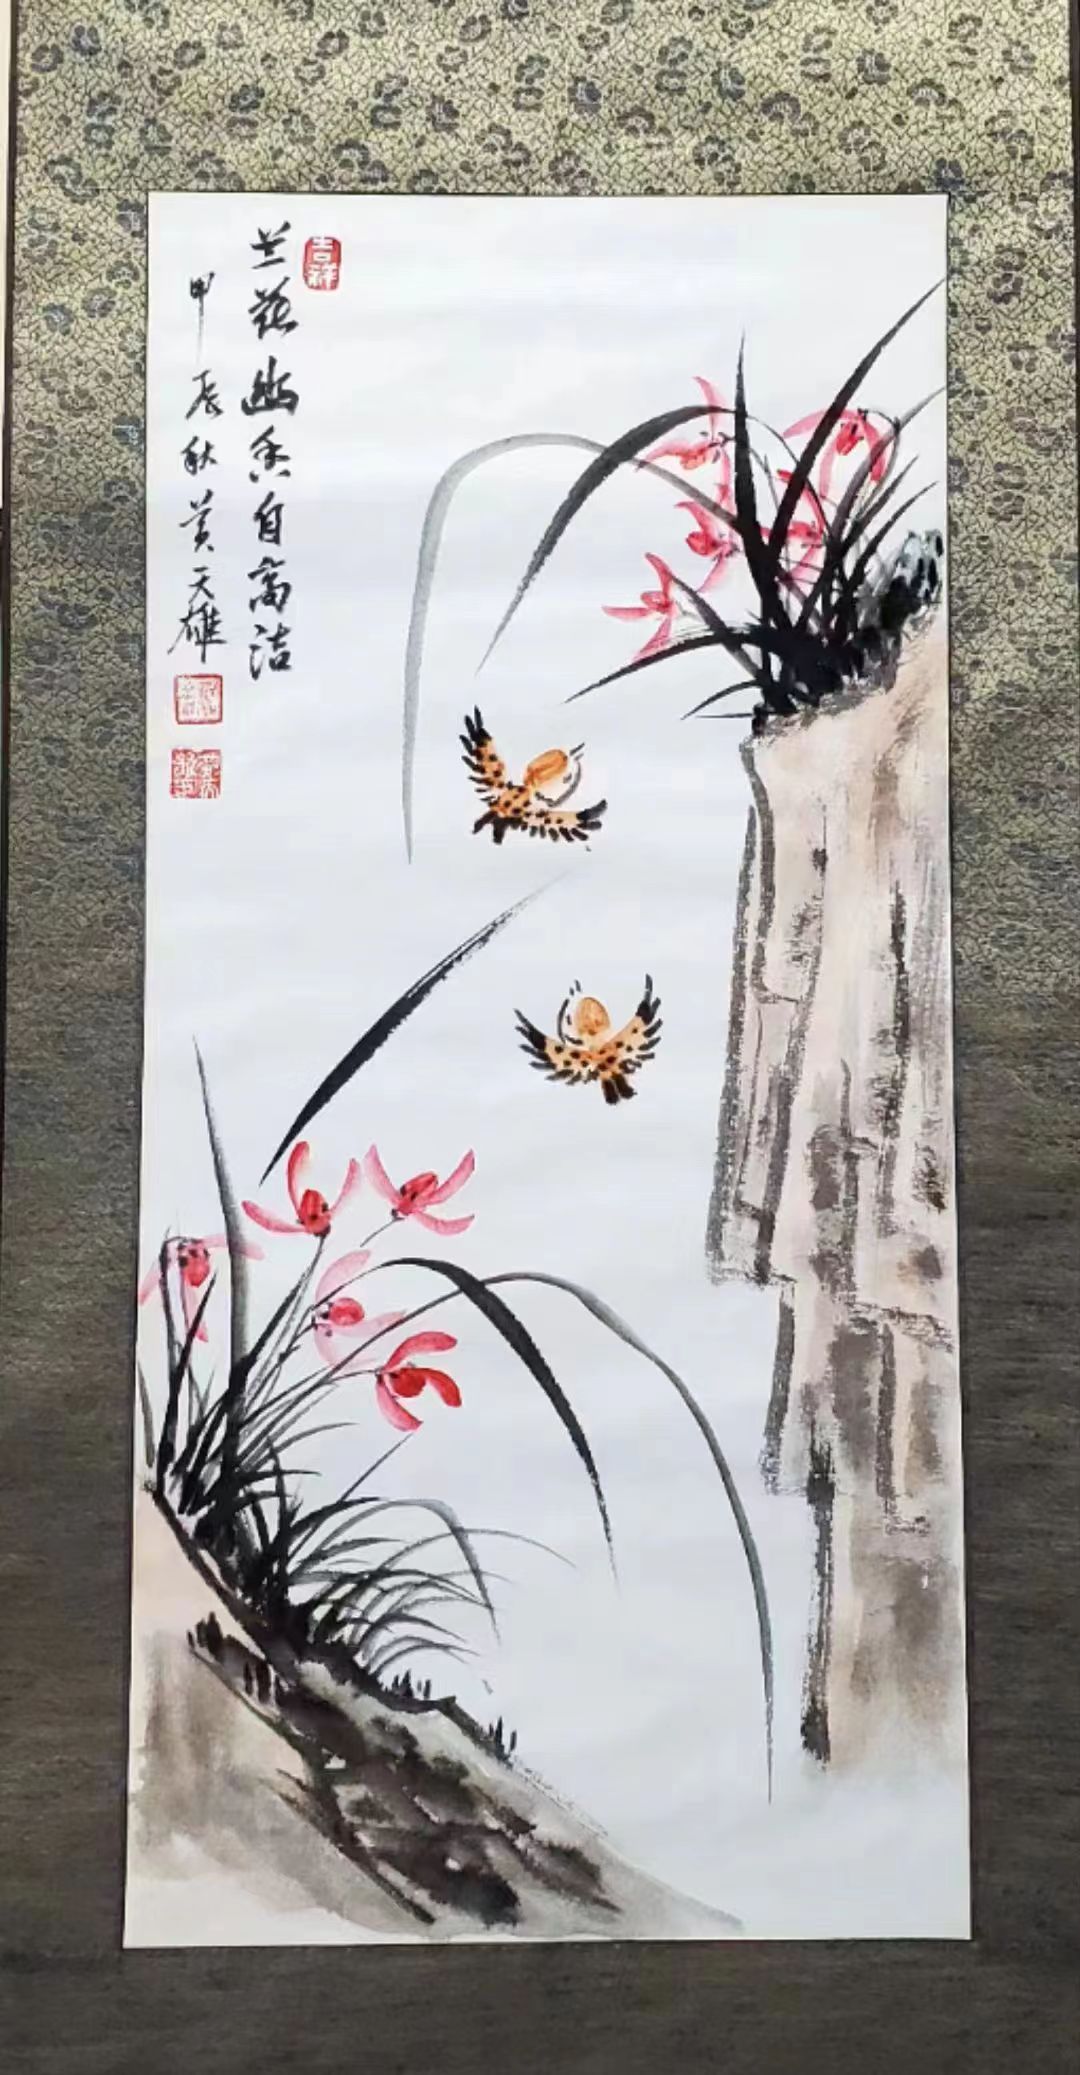 吉祥
兰花幽香自高洁
甲辰秋黄天雄